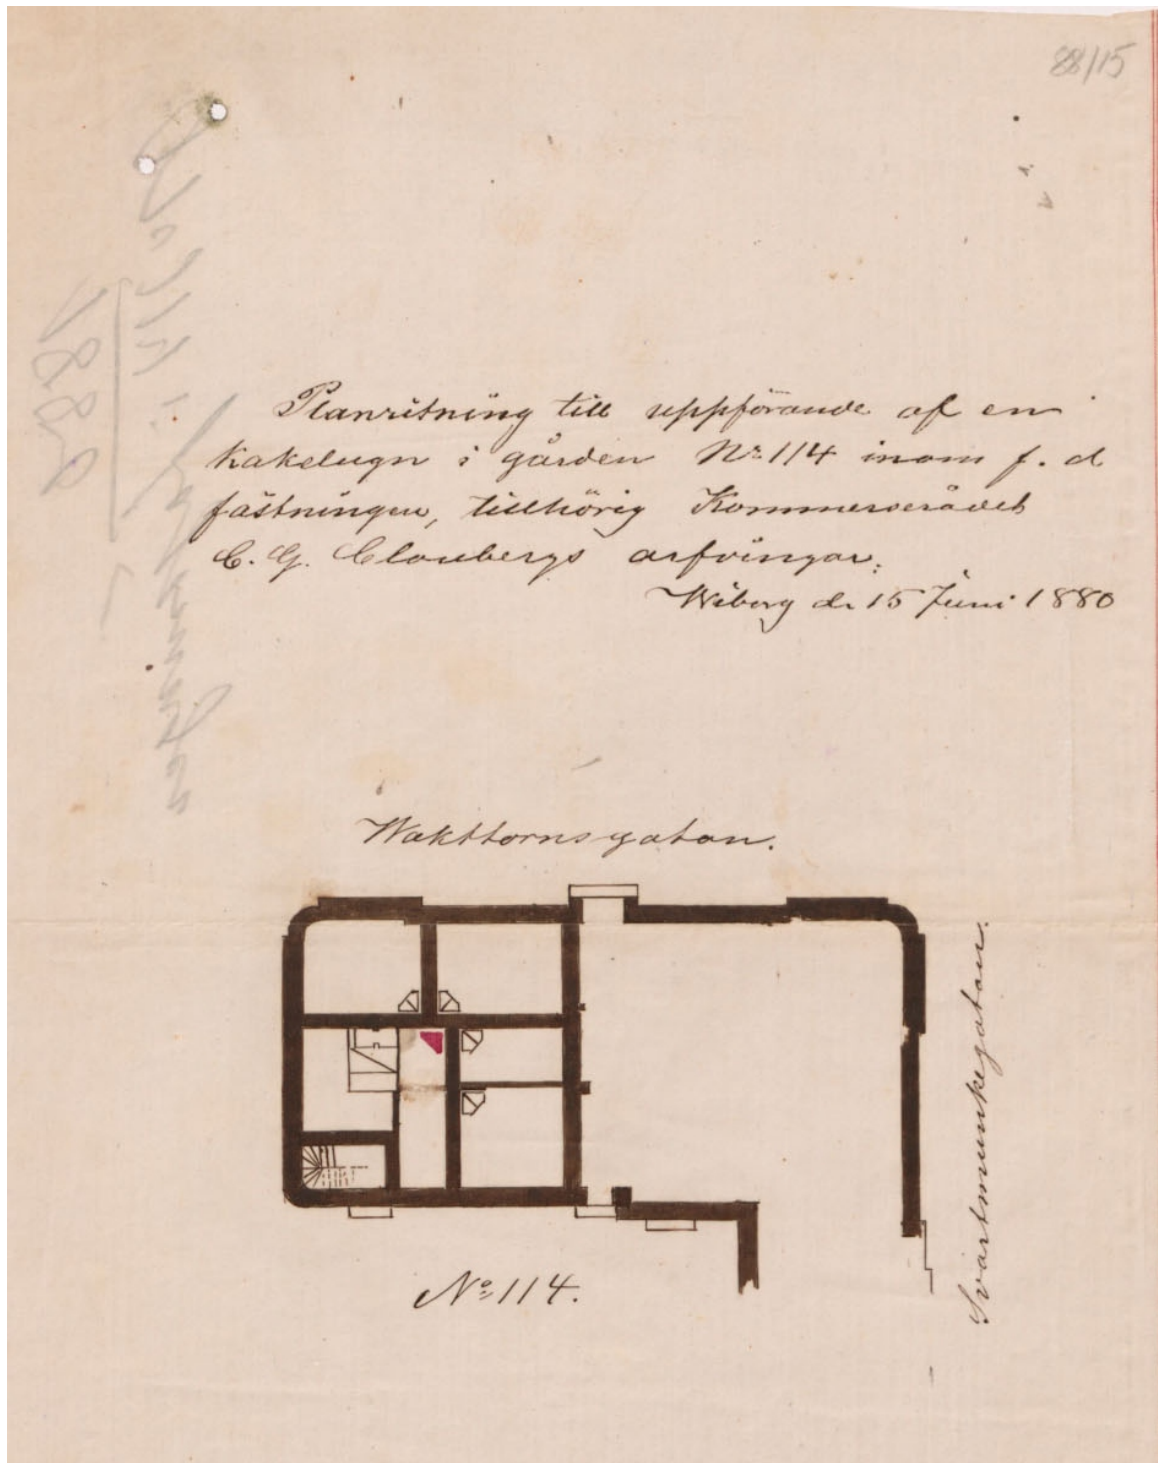 88/15
Planritning till uppförande af en
kakelugn i gården No 114 inom f. d
fästningen, tillhörig Kommerserådet
C. G. Cloubergs arfvingar.
Wiborg d. 15 Juni 1880
Wakttornsgatan.
Svartmunkegatan.
No 114.